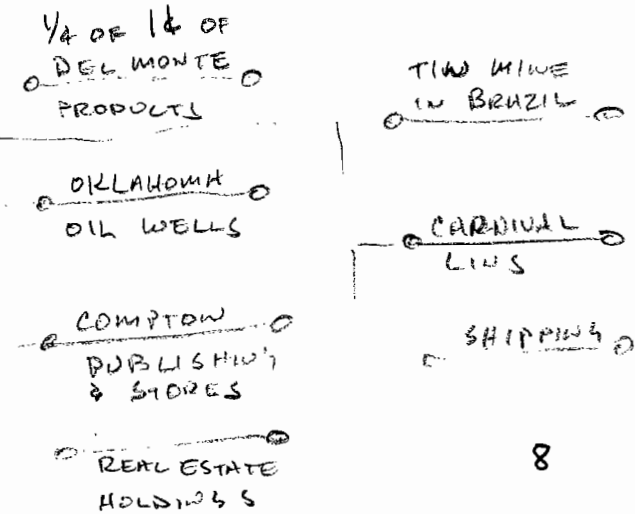 1/4 OF 1¢ OF
DEL MONTE
PRODUCTS
OKLAHOMA
OIL WELLS
COMPTON
PUBLISHIN'S
& STORES
REAL ESTATE
HOLDINGS
TIN MINE
IN BRAZIL
CARNIVAL
LINS
SHIPPING
8